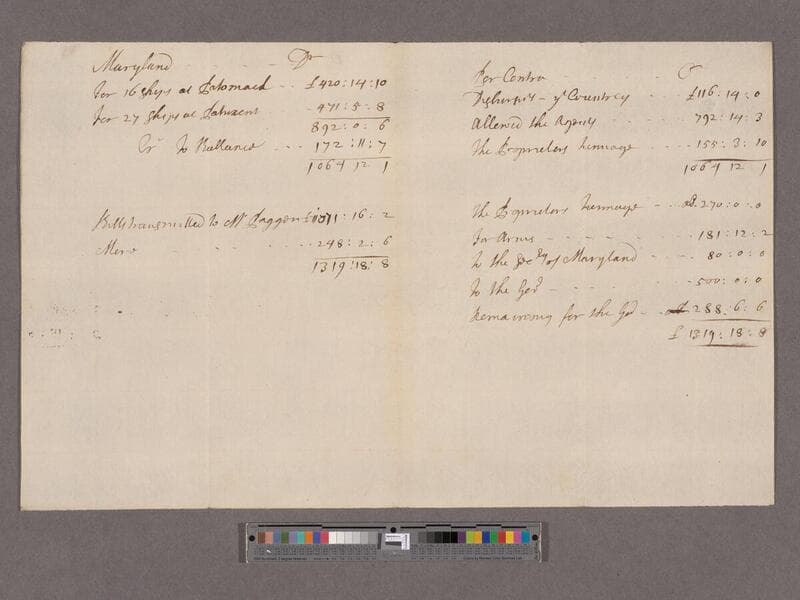 Maryland Dr
For 16 Ships at Patomack £420:14:10
For 27 Ships at Patuxent 471:5:8
892:0:6
To Ballance 172:11:7
1064 12 1
Bills transmitted to Mr Paggen £1071:16:2
More 248:2:6
1319:18:8
Per Contra Cr
ye Countrey £116:14:0
Allowed the Agents 792:14:3
The Proprietors tunnage 155:3:10
1064 12 1
The Proprietors tunnage 270:0:0
For Arms 181:12:2
To the Secry of Maryland 80:0:0
To the Gor 500:0:0
Remaineing for the Gor 288:6:6
£ 1319:18:8